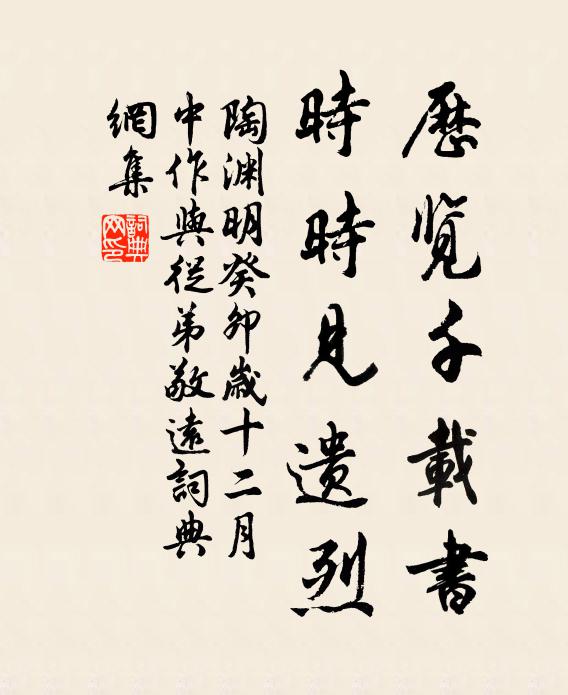 歷覽千載書
時時見遺烈
陶渊明癸卯歲十二月
中作與從弟敬遠詞典
網集
詞典
网印